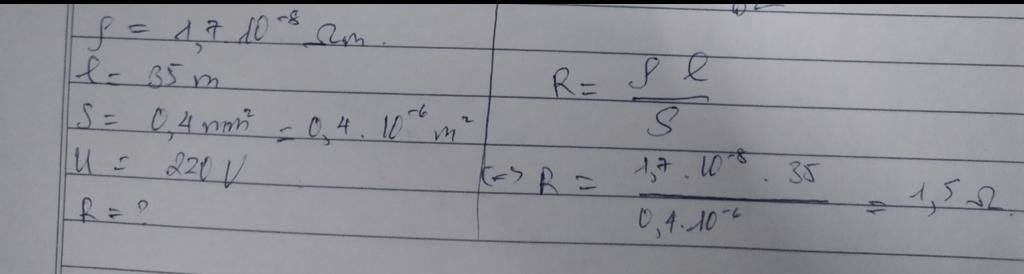 ρ = 1,7.10⁻⁸ Ωm.
l = 35 m
S = 0,4 mm² = 0,4 . 10⁻⁶ m²
U = 220 V
R = ?
R = ρ l / S
<=> R = 1,7 . 10⁻⁸ . 35 / 0,4.10⁻⁶ = 1,5 Ω.